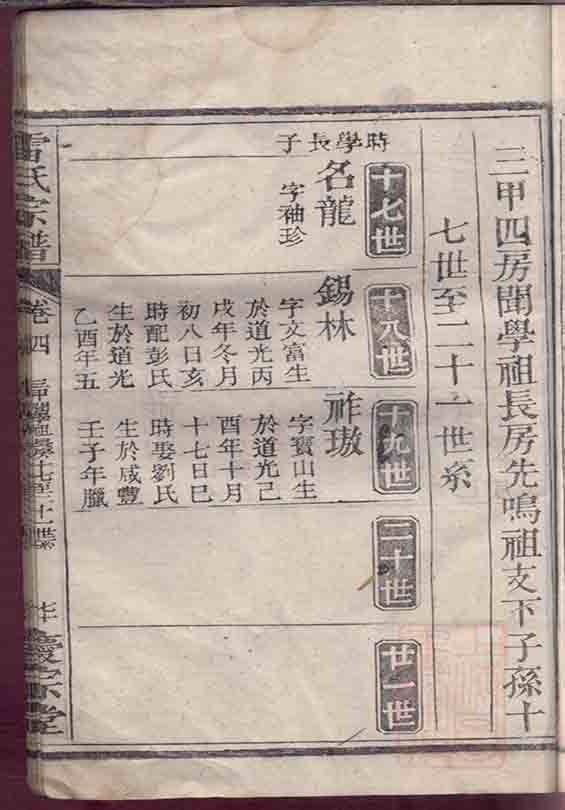 三甲四房聞學祖長房先鳴祖支下子孫十
七世至二十一世系
十七世
時學長子
名龍
字袖珍
十八世
錫林
字文富生
於道光丙
戌年冬月
初八日亥
時配彭氏
生於道光
乙酉年五
十九世
祚璈
字寶山生
於道光己
酉年十月
十七日巳
時娶劉氏
生於咸豐
壬子年臘
二十世
廿一世
雷氏宗譜
卷四
慶宗堂